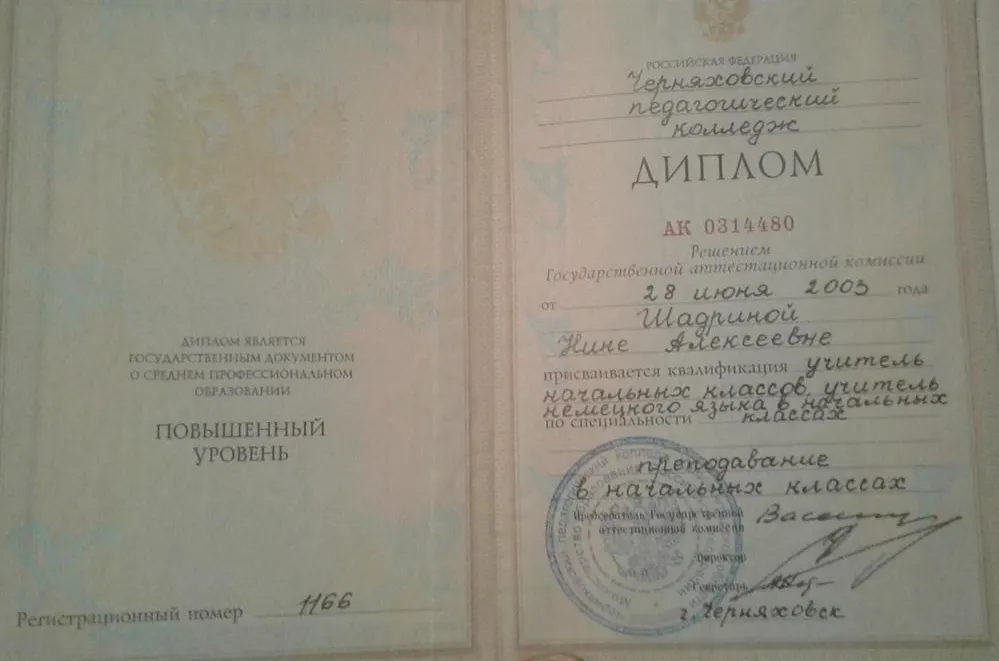 ДИПЛОМ ЯВЛЯЕТСЯ
ГОСУДАРСТВЕННЫМ ДОКУМЕНТОМ
О СРЕДНЕМ ПРОФЕССИОНАЛЬНОМ
ОБРАЗОВАНИИ
ПОВЫШЕННЫЙ
УРОВЕНЬ
Регистрационный номер 1166
РОССИЙСКАЯ ФЕДЕРАЦИЯ
Черняховский
педагогический
колледж
ДИПЛОМ
АК 0314480
Решением
Государственной аттестационной комиссии
от 28 июня 2003 года
Шадриной
Нине Алексеевне
присваивается квалификация учитель
начальных классов, учитель
немецкого языка в начальных
по специальности классах
преподавание
в начальных классах
Председатель Государственной
аттестационной комиссии
Директор
Секретарь
г. Черняховск